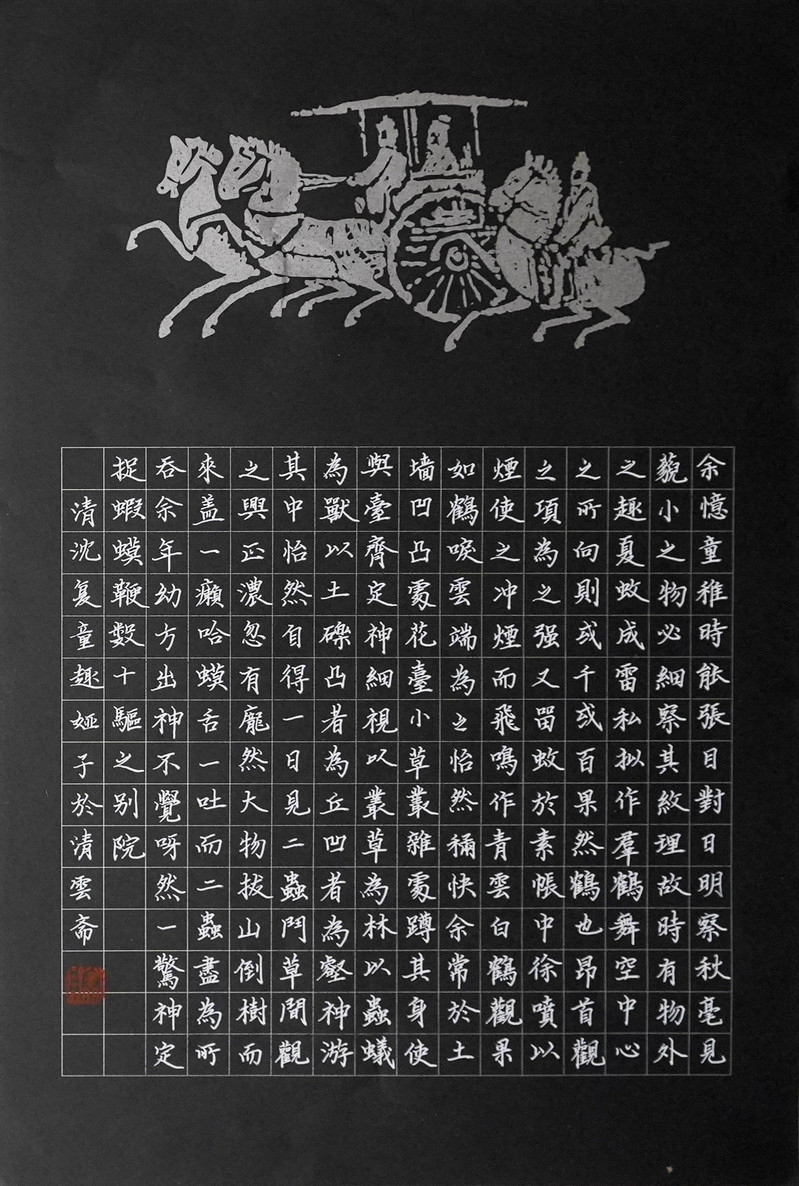 余憶童稚時能張目對日明察秋毫見
藐小之物必細察其紋理故時有物外
之趣夏蚊成雷私拟作羣鶴舞空中心
之所向則或千或百果然鶴也昂首觀
之項為之强又留蚊於素帳中徐噴以
煙使之冲煙而飛鳴作青雲白鶴觀果
如鶴唳雲端為之怡然稱快余常於土
墙凹凸處花臺小草叢雜處蹲其身使
與臺齊定神細視以叢草為林以蟲蟻
為獸以土礫凸者為丘凹者為壑神游
其中怡然自得一日見二蟲鬥草間觀
之興正濃忽有龐然大物拔山倒樹而
來盖一癩哈蟆舌一吐而二蟲盡為所
吞余年幼方出神不覺呀然一驚神定
捉蝦蟆鞭數十驅之别院
清沈复童趣娅子於清雲斋